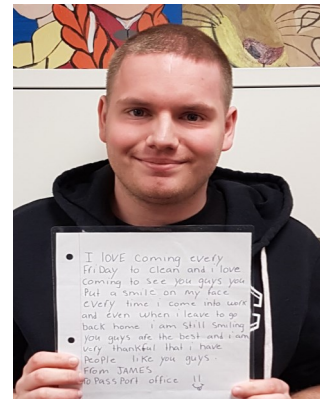 I LOVE Coming every
FriDay to Clean and i love
Coming to see you guys you
Put a smile on my face
every time i come into work
and even when i leave to go
back home i am Still smiling
you guys are the best and i am
very thankful that i have
PeoPle like you guys.
From JAMES
To PassPort office !!